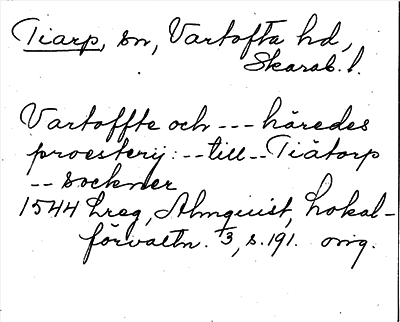 Tiarp, sn, Vartofta hd,
Skarab. l.
Vartoffte och --- häredes
proesterij: -- till -- Tiätorp
-- sockner
1544 Lreg, Almquist, Lokal-
förvaltn. 1/3, s. 191. orig.